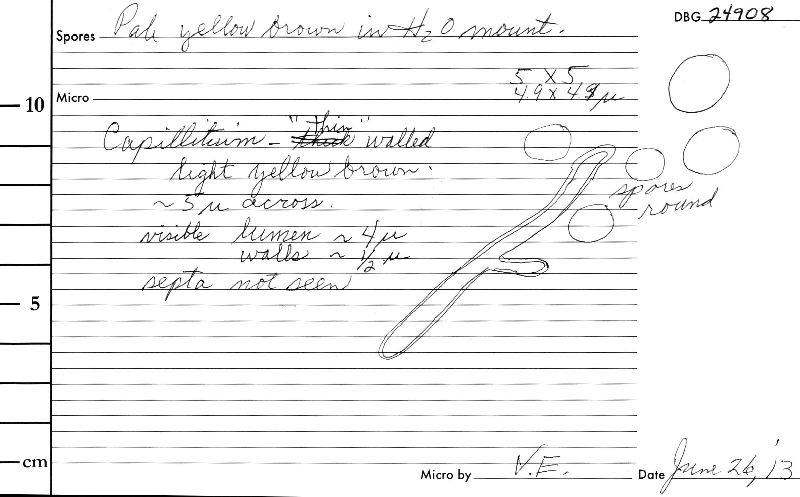 DBG 24908
Spores Pale yellow brown in H2O mount.
5 X 5
4.9 X 4.9 μ
Micro
10
Capillitium - "thin" walled
light yellow brown.
~ 5 μ across.
spores
round
visible lumen ~ 4 μ
walls ~ 1/2 μ
septa not seen
5
cm
Micro by V.E. Date June 26, '13